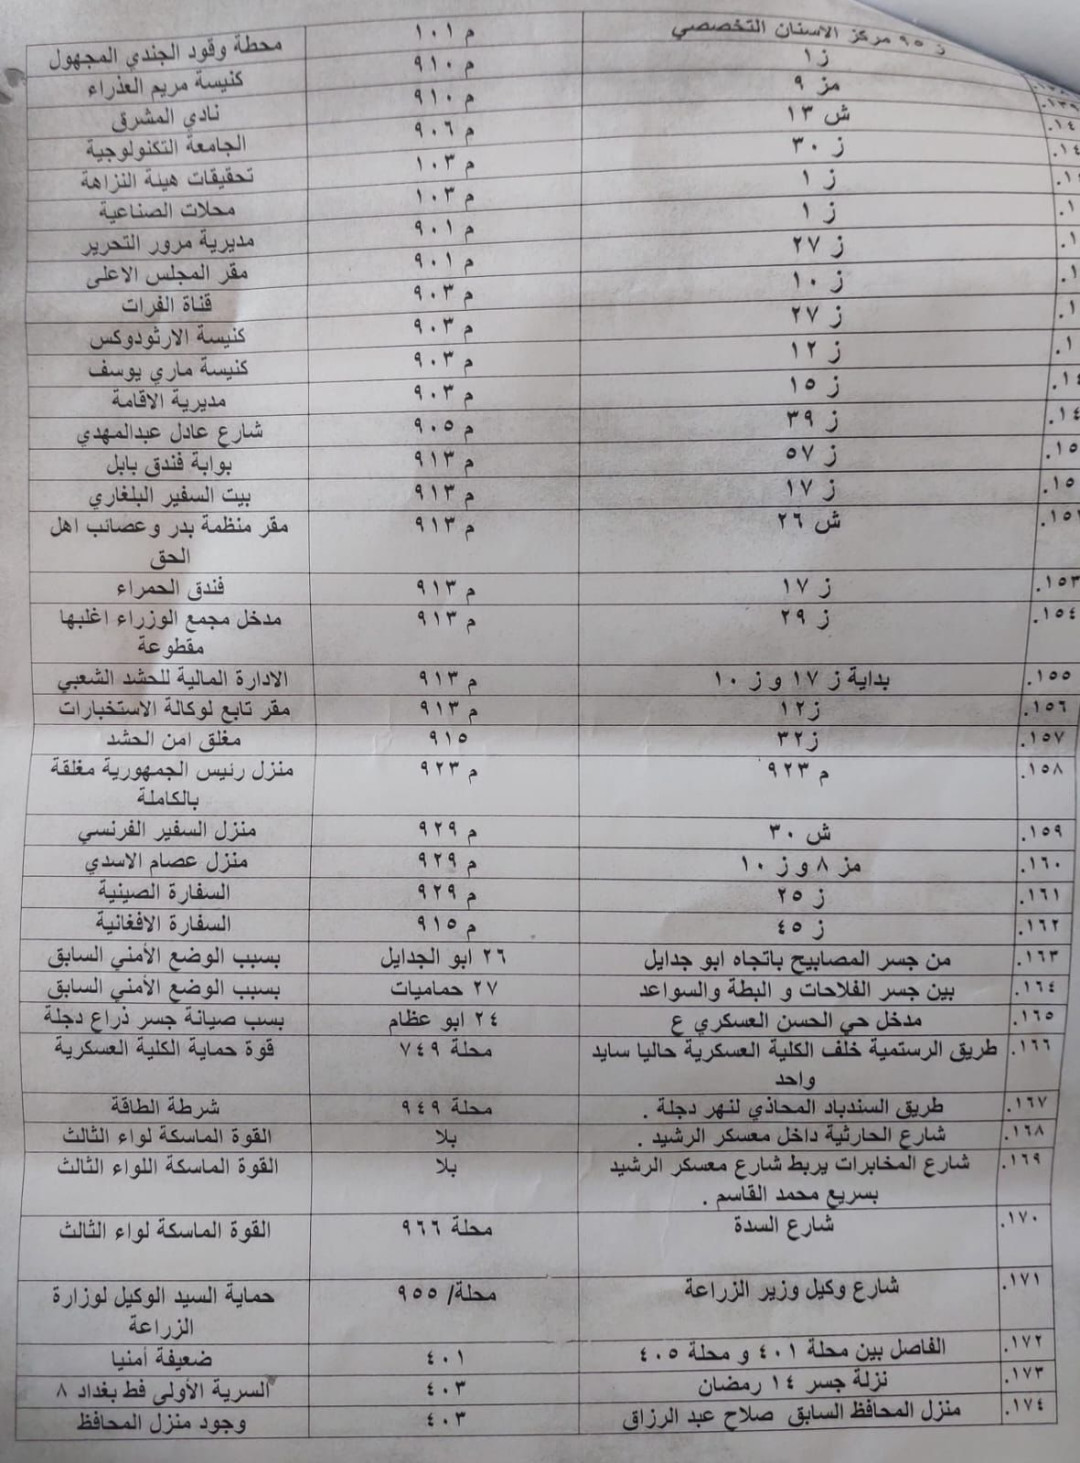 ز ٩٥ مركز الاسنان التخصصي م ١٠١ محطة وقود الجندي المجهول
ز١ م ٩١٠ كنيسة مريم العذراء
مز ٩ م ٩١٠ نادي المشرق
ش ١٣ م ٩٠٦ الجامعة التكنولوجية
ز ٣٠ م ١٠٣ تحقيقات هيئة النزاهة
ز ١ م ١٠٣ محلات الصناعية
ز ١ م ٩٠١ مديرية مرور التحرير
ز ٢٧ م ٩٠١ مقر المجلس الاعلى
ز ١٠ م ٩٠٣ قناة الفرات
ز ٢٧ م ٩٠٣ كنيسة الارثودوكس
ز ١٢ م ٩٠٣ كنيسة ماري يوسف
ز ١٥ م ٩٠٣ مديرية الاقامة
ز ٣٩ م ٩٠٥ شارع عادل عبدالمهدي
ز ٥٧ م ٩١٣ بوابة فندق بابل
ز ١٧ م ٩١٣ بيت السفير البلغاري
ش ٢٦ م ٩١٣ مقر منظمة بدر وعصائب اهل
الحق
١٥٣. ز ١٧ م ٩١٣ فندق الحمراء
١٥٤. ز ٢٩ م ٩١٣ مدخل مجمع الوزراء اغلبها
مقطوعة
١٥٥. بداية ز ١٧ و ز ١٠ م ٩١٣ الادارة المالية للحشد الشعبي
١٥٦. ز١٢ م ٩١٣ مقر تابع لوكالة الاستخبارات
١٥٧. ز٣٢ ٩١٥ مغلق امن الحشد
١٥٨. م ٩٢٣ م ٩٢٣ منزل رئيس الجمهورية مغلقة
بالكاملة
١٥٩. ش ٣٠ م ٩٢٩ منزل السفير الفرنسي
١٦٠. مز ٨ و ز ١٠ م ٩٢٩ منزل عصام الاسدي
١٦١. ز ٢٥ م ٩٢٩ السفارة الصينية
١٦٢. ز ٤٥ م ٩١٥ السفارة الافغانية
١٦٣. من جسر المصابيح باتجاه ابو جدايل ٢٦ ابو الجدايل بسبب الوضع الأمني السابق
١٦٤. بين جسر الفلاحات و البطة والسواعد ٢٧ حماميات بسبب الوضع الأمني السابق
١٦٥. مدخل حي الحسن العسكري ع ٢٤ ابو عظام بسب صيانة جسر ذراع دجلة
١٦٦. طريق الرستمية خلف الكلية العسكرية حاليا سايد محلة ٧٤٩ قوة حماية الكلية العسكرية
واحد
١٦٧. طريق السندباد المحاذي لنهر دجلة . محلة ٩٤٩ شرطة الطاقة
١٦٨. شارع الحارثية داخل معسكر الرشيد . بلا القوة الماسكة لواء الثالث
١٦٩. شارع المخابرات يربط شارع معسكر الرشيد بلا القوة الماسكة اللواء الثالث
بسريع محمد القاسم .
١٧٠. شارع السدة محلة ٩٦٦ القوة الماسكة لواء الثالث
١٧١. شارع وكيل وزير الزراعة محلة/ ٩٥٥ حماية السيد الوكيل لوزارة
الزراعة
١٧٢. الفاصل بين محلة ٤٠١ و محلة ٤٠٥ ٤٠١ ضعيفة أمنيا
١٧٣. نزلة جسر ١٤ رمضان ٤٠٣ السرية الأولى فط بغداد ٨
١٧٤. منزل المحافظ السابق صلاح عبد الرزاق ٤٠٣ وجود منزل المحافظ